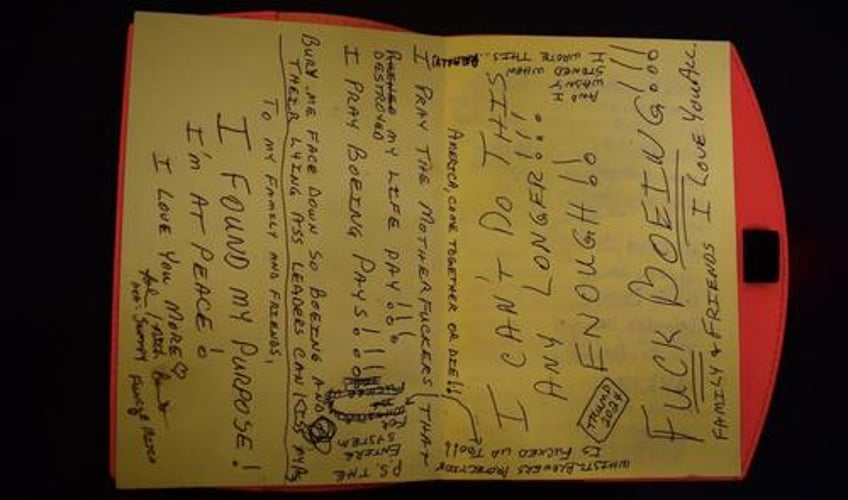 I CAN'T DO THIS
ANY LONGER!!!
ENOUGH!!
FUCK BOEING!!!
FAMILY & FRIENDS I LOVE YOU ALL.
TRUMP 2024
I WROTE THIS...
AND I
WASN'T
STONED WHEN
AMERICA, COME TOGETHER OR DIE!!
I PRAY THE MOTHERFUCKERS THAT
DESTROYED MY LIFE PAY!!!
I PRAY BOEING PAYS!!!
BURY ME FACE DOWN SO BOEING AND
THEIR LYING ASS LEADERS CAN KISS MY
TO MY FAMILY AND FRIENDS,
I FOUND MY PURPOSE!
I'M AT PEACE!
I LOVE YOU MORE ♡
P.S. THE
ENTIRE
SYSTEM
FOR
WHISTLEBLOWERS PROTECTION
IS FUCKED UP TOO!!